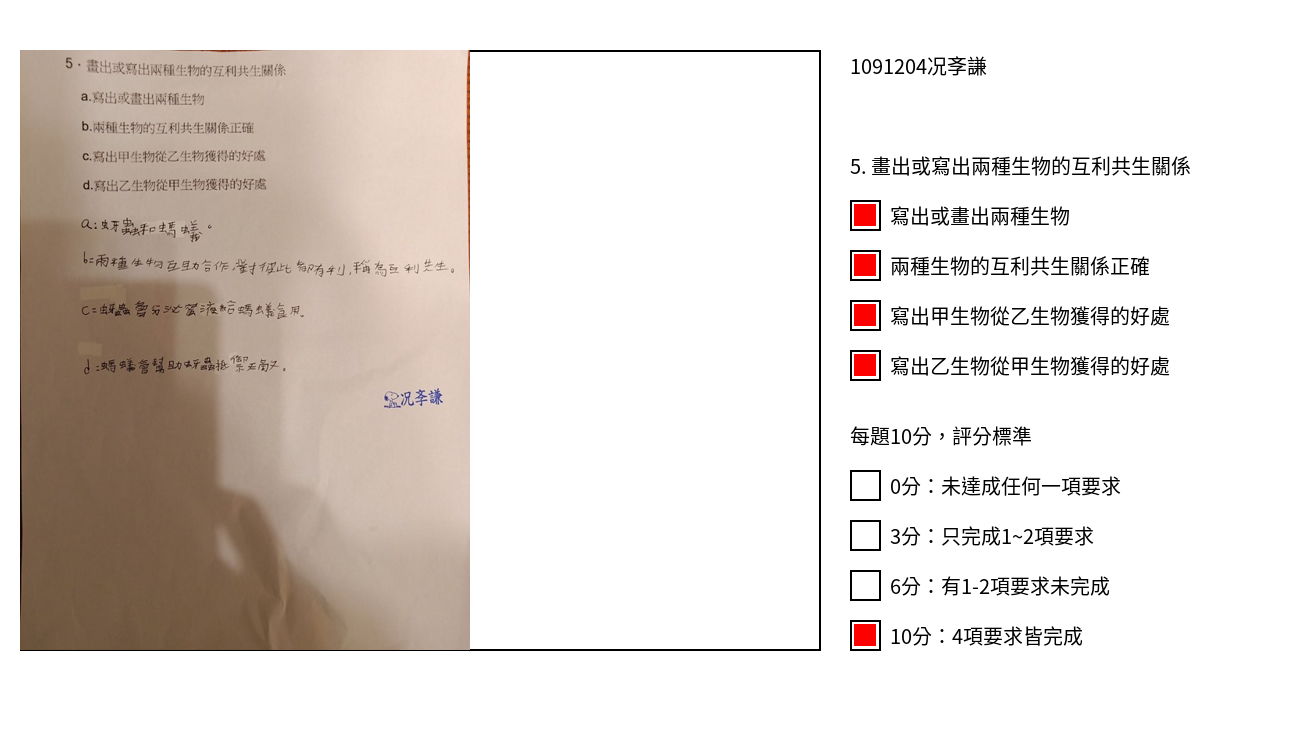 5．畫出或寫出兩種生物的互利共生關係
a.寫出或畫出兩種生物
b.兩種生物的互利共生關係正確
c.寫出甲生物從乙生物獲得的好處
d.寫出乙生物從甲生物獲得的好處
a:蚜蟲和螞蟻。
b:兩種生物互助合作,對彼此都有利,稱為互利共生。
c:蚜蟲會分泌蜜液給螞蟻食用。
d:螞蟻會幫助蚜蟲抵禦天敵。
况孝謙
1091204况孝謙
5. 畫出或寫出兩種生物的互利共生關係
寫出或畫出兩種生物
兩種生物的互利共生關係正確
寫出甲生物從乙生物獲得的好處
寫出乙生物從甲生物獲得的好處
每題10分，評分標準
0分：未達成任何一項要求
3分：只完成1~2項要求
6分：有1-2項要求未完成
10分：4項要求皆完成